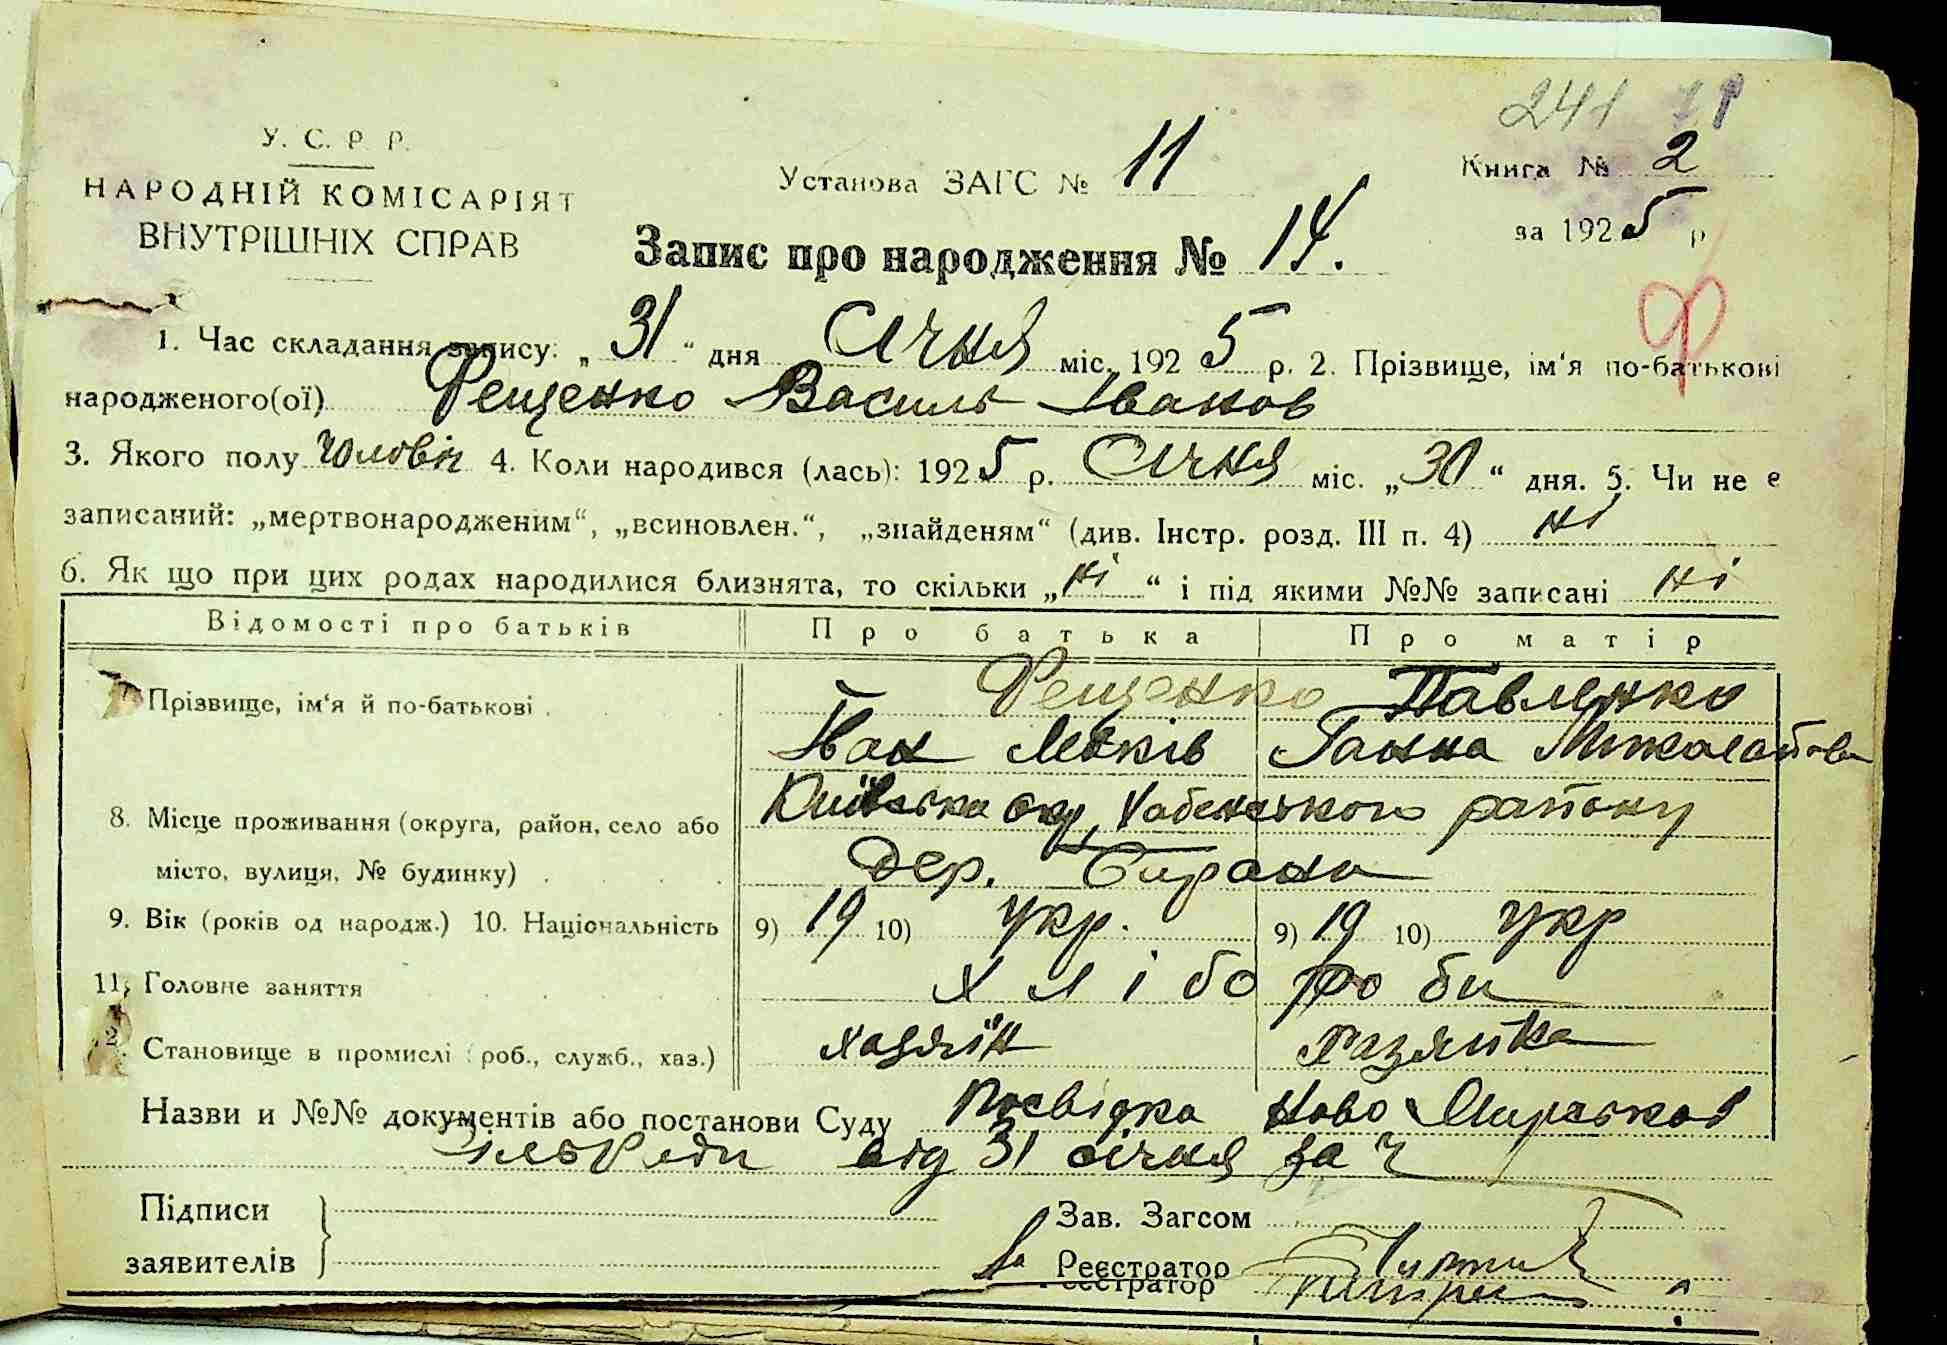 241
У. С. Р. Р.
НАРОДНІЙ КОМІСАРІЯТ
ВНУТРІШНІХ СПРАВ
Установа ЗАГС № 11
Книга № 2
за 1925 р
Запис про народження № 14.
1. Час складання запису: „31" дня Січня міс. 1925 р. 2. Прізвище, ім'я по-батькові
народженого(ої) Рещенко Василь Іванов
3. Якого полу чоловіч 4. Коли народився (лась): 1925 р. Січня міс. „30" дня. 5. Чи не є
записаний: „мертвонародженим", „всиновлен.", „знайденям" (див. Інстр. розд. III п. 4) ні
6. Як що при цих родах народилися близнята, то скільки „ні" і під якими №№ записані ні
Відомості про батьків Про батька Про матір
7. Прізвище, ім'я й по-батькові. Рещенко Павленко
Іван Ганна
8. Місце проживання (округа, район, село або Київська окр, Хабенського району
місто, вулиця, № будинку) . дер.
9. Вік (років од народж.) 10. Національність 9) 19 10) укр. 9) 19 10) укр
11. Головне заняття Хлібороби
12. Становище в промислі (роб., служб., хаз.) хазяїн хазяйка
Назви и №№ документів або постанови Суду Посвідка Ново
СільРади від 31 січня за Ч
Підписи
заявителів
Зав. Загсом
Реєстратор
Реєстратор